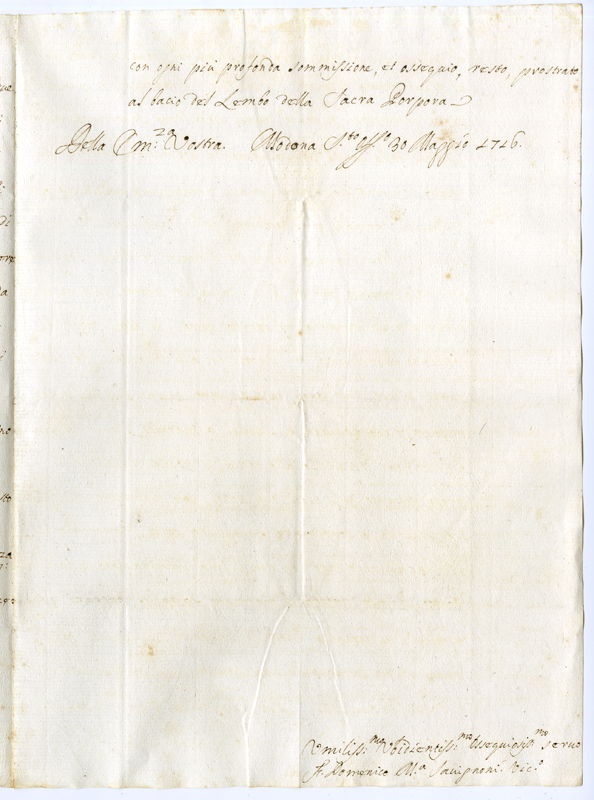 con ogni più profonda sommissione, et ossequio, resto, prostrato
al bacio del Lembo della Sacra Porpora
Della Em:za Vostra. Modona S.to Offo 30 Maggio 1716.
Umiliss:mo Vbidientiss:mo Ossequiosiss:mo servo
Fr. Domenico M.a Savignoni Vic.o